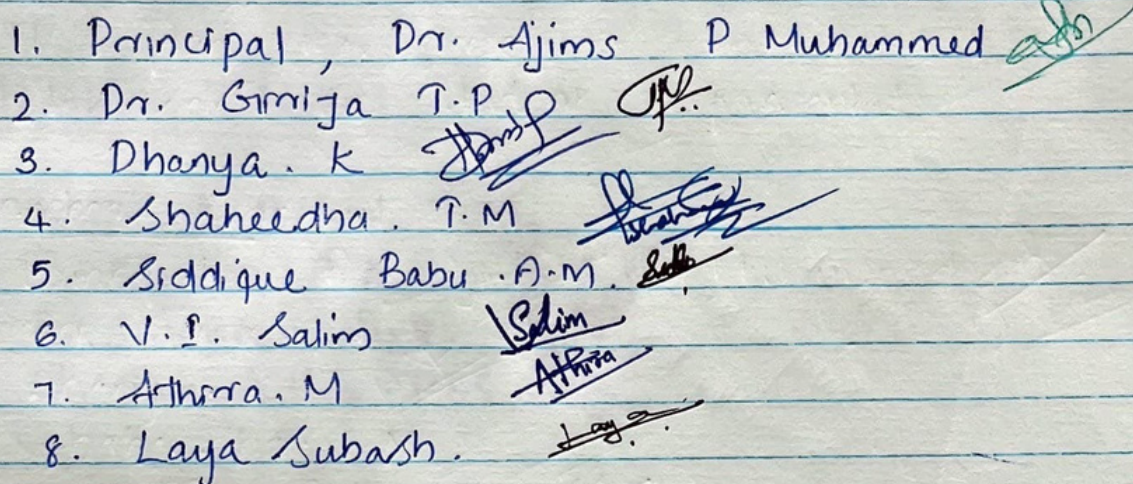 1. Principal, Dr. Ajims P Muhammed
2. Dr. Girija T.P
3. Dhanya. K
4. Shaheedha. T.M
5. Siddique Babu .A.M.
6. V.I. Salim Salim
7. Athira. M Athira
8. Laya Subash. Laya